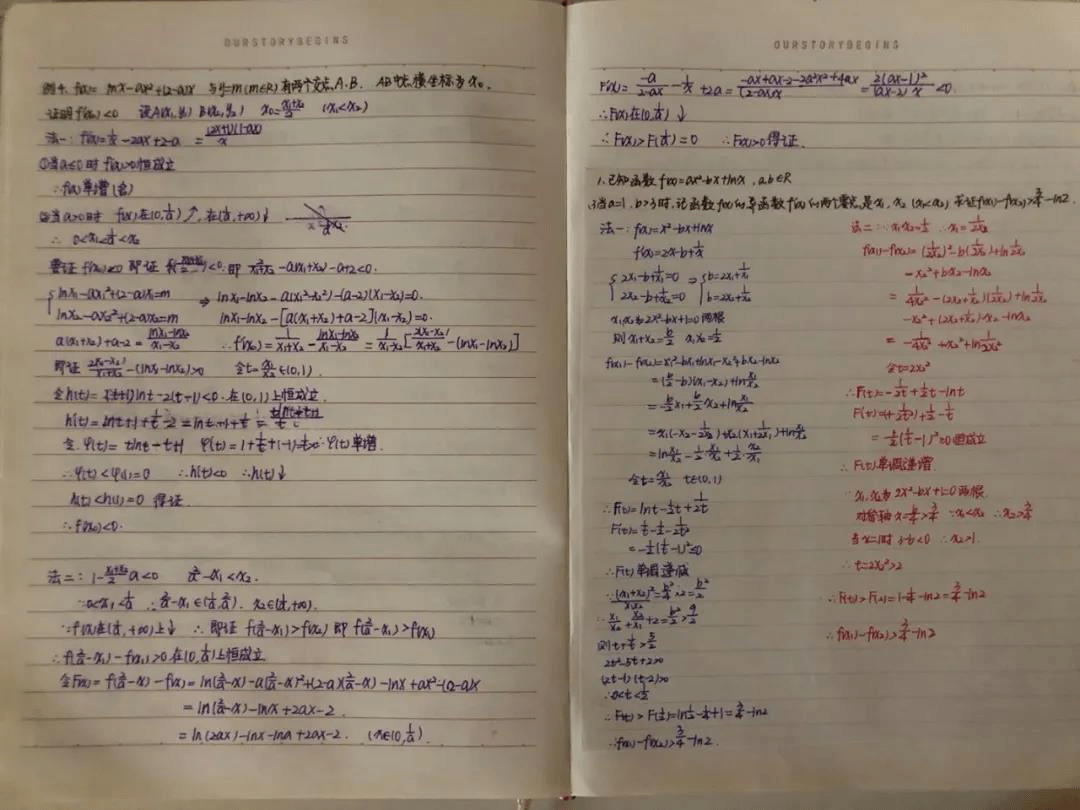 OURSTORYBEGINS
例4. f(x)= lnx-ax²+(2-a)x 与y=m(m∈R)有两个交点A.B. AB中点横坐标为x₀.
证明f'(x₀)<0 设A(x₁,y₁) B(x₂,y₂) x₀=(x₁+x₂)/2 (x₁<x₂)
法一: f'(x)=1/x-2ax+2-a = (2x+1)(1-ax)/x
①当a≤0时 f'(x)>0恒成立
∴f(x)单增(舍)
②当a>0时 f(x)在(0,1/a)↗, 在(1/a,+∞)↓
∴ 0<x₁<1/a<x₂
要证f'(x₀)<0 即证 f'((x₁+x₂)/2)<0. 即 2/(x₁+x₂)-a(x₁+x₂)-a+2<0.
{lnx₁-ax₁²+(2-a)x₁=m ⇒ lnx₁-lnx₂-a(x₁²-x₂²)-(a-2)(x₁-x₂)=0.
lnx₂-ax₂²+(2-a)x₂=m lnx₁-lnx₂-[a(x₁+x₂)+a-2](x₁-x₂)=0.
a(x₁+x₂)+a-2=(lnx₁-lnx₂)/(x₁-x₂) ∴f'(x₀)=2/(x₁+x₂)-(lnx₁-lnx₂)/(x₁-x₂)=1/(x₁-x₂)[2(x₁-x₂)/(x₁+x₂)-(lnx₁-lnx₂)]
即证 2(x₁-x₂)/(x₁+x₂)-(lnx₁-lnx₂)>0 令t=x₁/x₂∈(0,1).
令h(t)=(t+1)lnt-2(t-1)<0.在(0,1)上恒成立
h'(t)=lnt+1+1/t-2=lnt-1+1/t=(tlnt-t+1)/t
令φ(t)=tlnt-t+1
∴φ(t)单增.
∴h'(t)<0 ∴h(t)↓
h(t)<h(1)=0 得证
∴f'(x₀)<0.
法二: 1-(x₁+x₂)/2 a<0 2/a-x₁<x₂.
∵0<x₁<1/a ∴2/a-x₁∈(1/a,2/a). x₂∈(1/a,+∞).
∵f(x)在(1/a,+∞)上↓ ∴即证f(2/a-x₁)>f(x₂) 即f(2/a-x₁)>f(x₁)
∴f(2/a-x₁)-f(x₁)>0在(0,1/a)上恒成立
令F(x)=f(2/a-x)-f(x)=ln(2/a-x)-a(2/a-x)²+(2-a)(2/a-x)-lnx+ax²-(2-a)x
=ln(2/a-x)-lnx+2ax-2.
=ln(2-ax)-lnx-lna+2ax-2. (x∈(0,1/a)).
OURSTORYBEGINS
F'(x)=-a/(2-ax)-1/x+2a=(-ax+ax-2-2a²x²+4ax)/((2-ax)x)=2(ax-1)²/((ax-2)x)<0.
∴F(x)在(0,1/a)↓
∴F(x)>F(1/a)=0 ∴F(x)>0得证.
1.已知函数f(x)=ax²-bx+lnx, a,b∈R
当a=1, b>3时,记函数f(x)的导函数f'(x)的两个零点是x₁,x₂ (x₁<x₂) 求证f(x₁)-f(x₂)>3/4-ln2.
法一: f(x)=x²-bx+lnx
f'(x)=2x-b+1/x
{2x₁-b+1/x₁=0 ⇒ {b=2x₁+1/x₁
2x₂-b+1/x₂=0 b=2x₂+1/x₂
x₁,x₂为2x²-bx+1=0两根
则x₁+x₂=b/2 x₁x₂=1/2
f(x₁)-f(x₂)=x₁²-bx₁+lnx₁-x₂²+bx₂-lnx₂
=(b/2-b)(x₁-x₂)+lnx₁/x₂
=-b/2x₁+b/2x₂+lnx₁/x₂
=x₁(-x₂-1/2x₂)+x₂(x₁+1/2x₁)+lnx₁/x₂
=lnx₁/x₂-1/2·x₁/x₂+1/2·x₂/x₁
令t=x₁/x₂ t∈(0,1)
∴F(t)=lnt-1/2t+1/2t
F'(t)=1/t-1/2-1/2t²
=-1/2(1/t-1)²≤0
∴F(t)单调递减
∵(x₁+x₂)²/x₁x₂=b²/4×2=b²/2
∴x₁/x₂+x₂/x₁+2=b²/2>9/2
则t+1/t>5/2
2t²-5t+2>0
(2t-1)(t-2)>0
∴0<t<1/2
∴F(t)>F(1/2)=ln1/2-1/4+1=3/4-ln2
∴f(x₁)-f(x₂)>3/4-ln2.
法二: ∵x₁x₂=1/2 ∴x₁=1/2x₂
f(x₁)-f(x₂)=(1/2x₂)²-b(1/2x₂)+ln1/2x₂
-x₂²+bx₂-lnx₂
=1/4x₂²-(2x₂+1/x₂)(1/2x₂)+ln1/2x₂
-x₂²+(2x₂+1/x₂)·x₂-lnx₂
=-1/4x₂²+x₂²+ln1/2x₂²
令t=2x₂²
∴F(t)=-1/2t+1/2t-lnt
=1/2(1/t-1)²≥0恒成立
∴F(t)单调递增.
∵x₁,x₂为2x²-bx+1=0两根
对称轴x=b/4>3/4 ∵x₁<x₂ ∴x₂>3/4
当x=1时 3-b<0 ∴x₂>1.
∴t=2x₂²>2
∴F(t)>F(2)=1-1/4-ln2=3/4-ln2
∴f(x₁)-f(x₂)>3/4-ln2